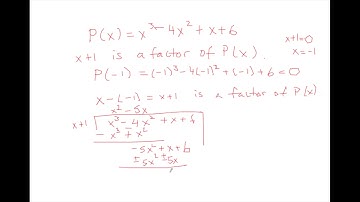 P(x) = x³ - 4x² + x + 6
x+1 is a factor of P(x).
x+1=0
x=-1
P(-1) = (-1)³ - 4(-1)² + (-1) + 6 = 0
x-(-1) = x+1 is a factor of P(x)
x² - 5x
x+1 x³ - 4x² + x + 6
- x³ + x²
-5x² + x + 6
± 5x² ± 5x